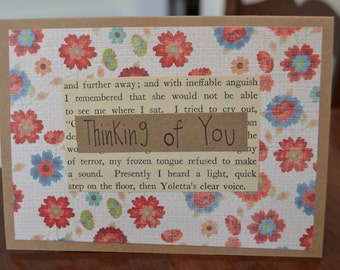 and further away; and with ineffable anguish
I remembered that she would not be able
to see me where I sat. I tried to cry out,
Thinking of You
of terror, my frozen tongue refused to make
a sound. Presently I heard a light, quick
step on the floor, then Yoletta's clear voice.